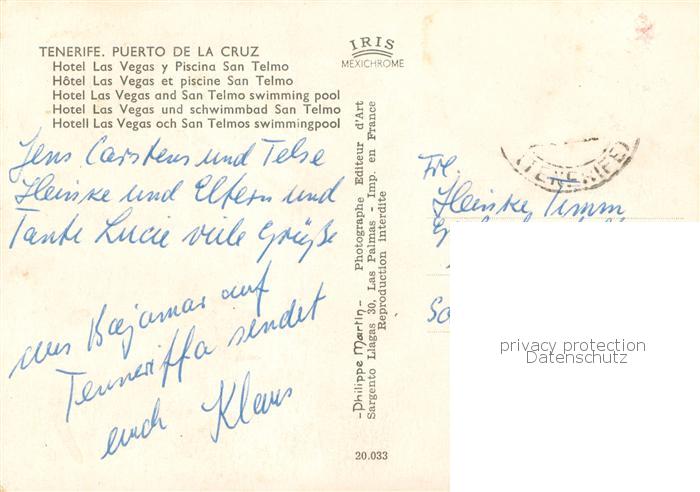 TENERIFE. PUERTO DE LA CRUZ
Hotel Las Vegas y Piscina San Telmo
Hôtel Las Vegas et piscine San Telmo
Hotel Las Vegas and San Telmo swimming pool
Hotel Las Vegas und schwimmbad San Telmo
Hotell Las Vegas och San Telmos swimmingpool
IRIS
MEXICHROME
Jens Carstens und Telse
Heinske und Eltern und
Tante Lucie viele Grüße
aus Bajamar auf
Tenneriffa sendet
euch Klaus
-Philippe Martin- Photographe Editeur d'Art
Sargento Llagas 30, Las Palmas - Imp. en France
Reproduction interdite
20.033
(TENERIFE)
Frl.
Heinske Timm
privacy protection
Datenschutz